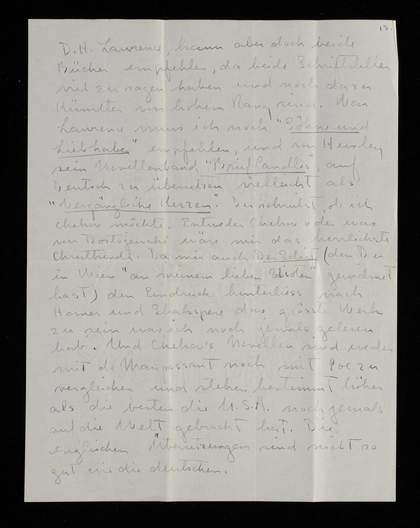 13.
D. H. Lawrence, kann aber doch beide
Bücher empfehlen, da beide Schriftsteller
viel zu sagen haben und noch dazu
Künstler von hohem Rang sind. Von
Lawrence muss ich noch "Söhne und
Liebhaber" empfehlen, und von Huxley
sein Novellenband "Brief Candles", auf
Deutsch zu übersetzen vielleicht als
"Vergängliche Kerzen". Du schreibst, ob ich
Chehov möchte. Entweder Chehov oder was
von Dostojewski wäre mir das herrlichste
Da mir auch Der Idiot (den Du
in Wien "an meinem lieben" gewidmet
hast) den Eindruck hinterliess nach
Homer und Shakspere das grösste Werk
zu sein was ich noch jemals gelesen
habe. Und Chehov's Novellen sind weder
mit de Maupassant noch mit Poe zu
vergleichen und stehen bestimmt höher
als die besten die U.S.A. noch jemals
auf die Welt gebracht hat. Die
englischen Übersetzungen sind nicht so
gut wie die deutschen.